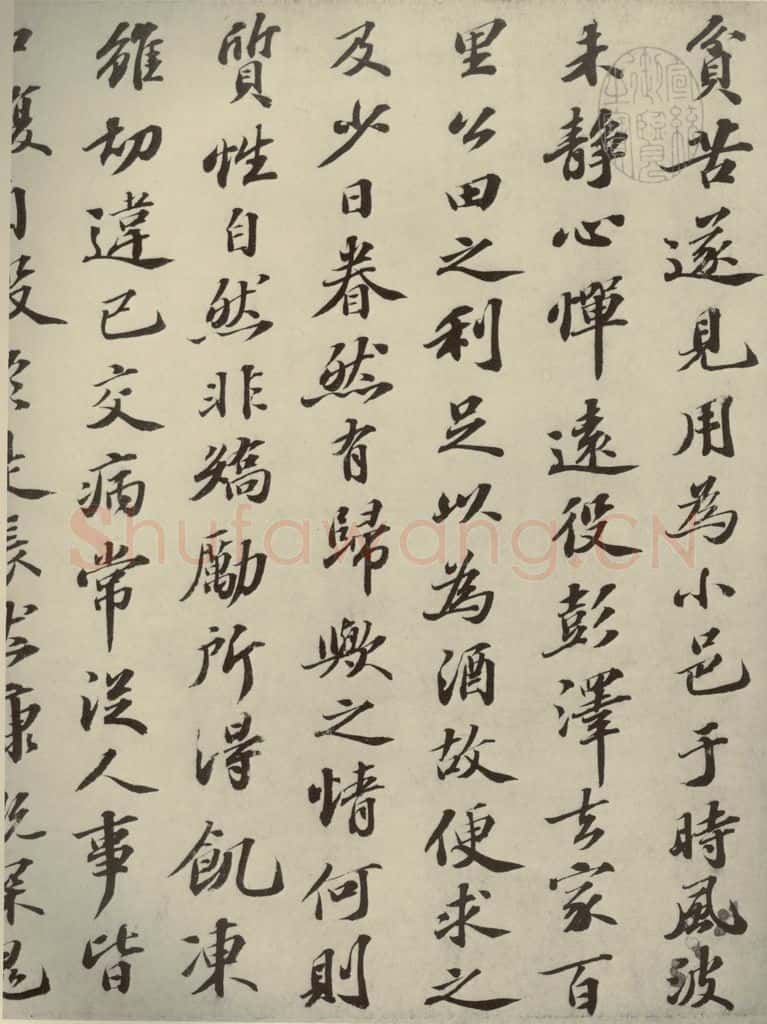 貧苦遂見用為小邑于時風波
未静心憚遠役彭澤去家百
里公田之利足以為酒故便求之
及少日眷然有歸歟之情何則
質性自然非矯勵所得飢凍
雖切違己交病常從人事皆
宣統御覽之寶
Shufawang.CN